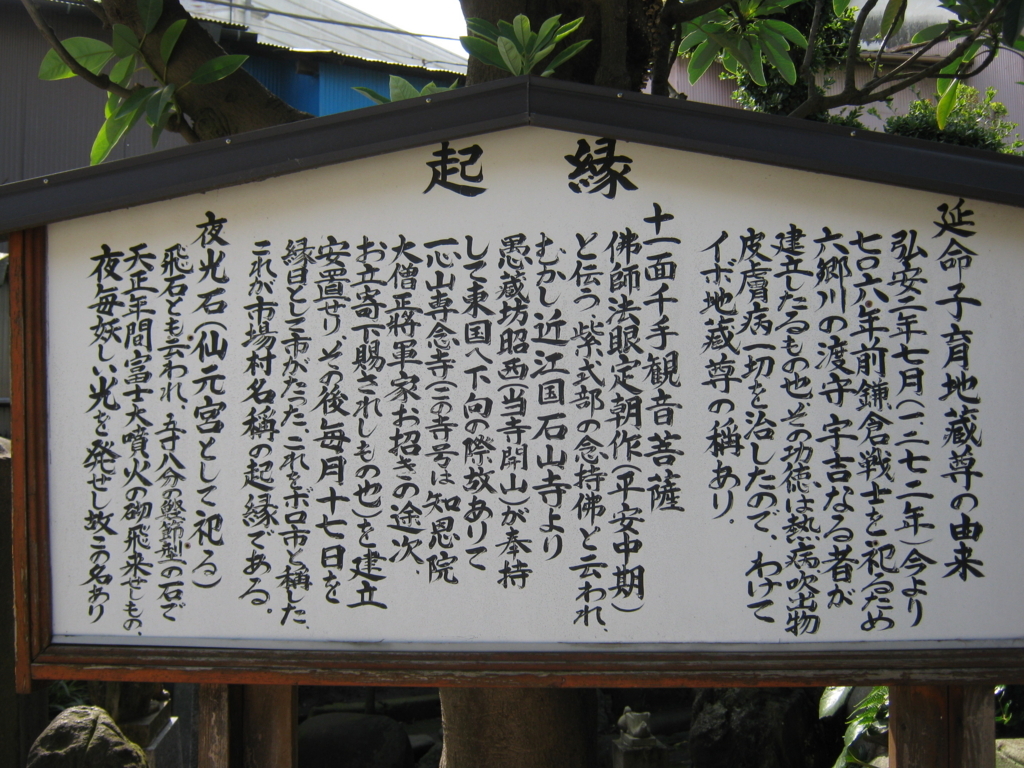 縁起
延命子育地蔵尊の由来
弘安二年七月(一二七二年)今より
七〇六年前鎌倉戦士を祀るため
六郷川の渡守宇吉なる者が
建立したるもの也その功徳は熱病吹出物
皮膚病一切を治したので、わけて
イボ地蔵尊の稱あり.
十一面千手観音菩薩
佛師法眼定朝作(平安中期)
と伝う、紫式部の念持佛と云われ、
むかし近江国石山寺より
愚蔵坊昭西(当寺開山)が奉持
して東国へ下向の際故ありて
一心山専念寺(この寺号は知恩院
大僧正將軍家お招きの途次、
お立寄下賜されしもの也)を建立
安置せり、その後毎月十七日を
縁日として市がたった、これをボロ市と稱した、
これが市場村名稱の起縁である。
夜光石(仙元宮として祀る)
飛石とも云われ、五寸八分の鰹節型の石で
天正年間富士大噴火の砌飛来せしもの、
夜毎妖しい光を発せし故この名あり